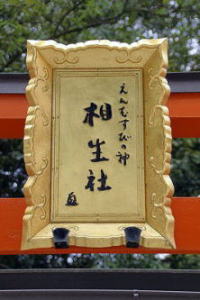 えんむすびの神
相生社